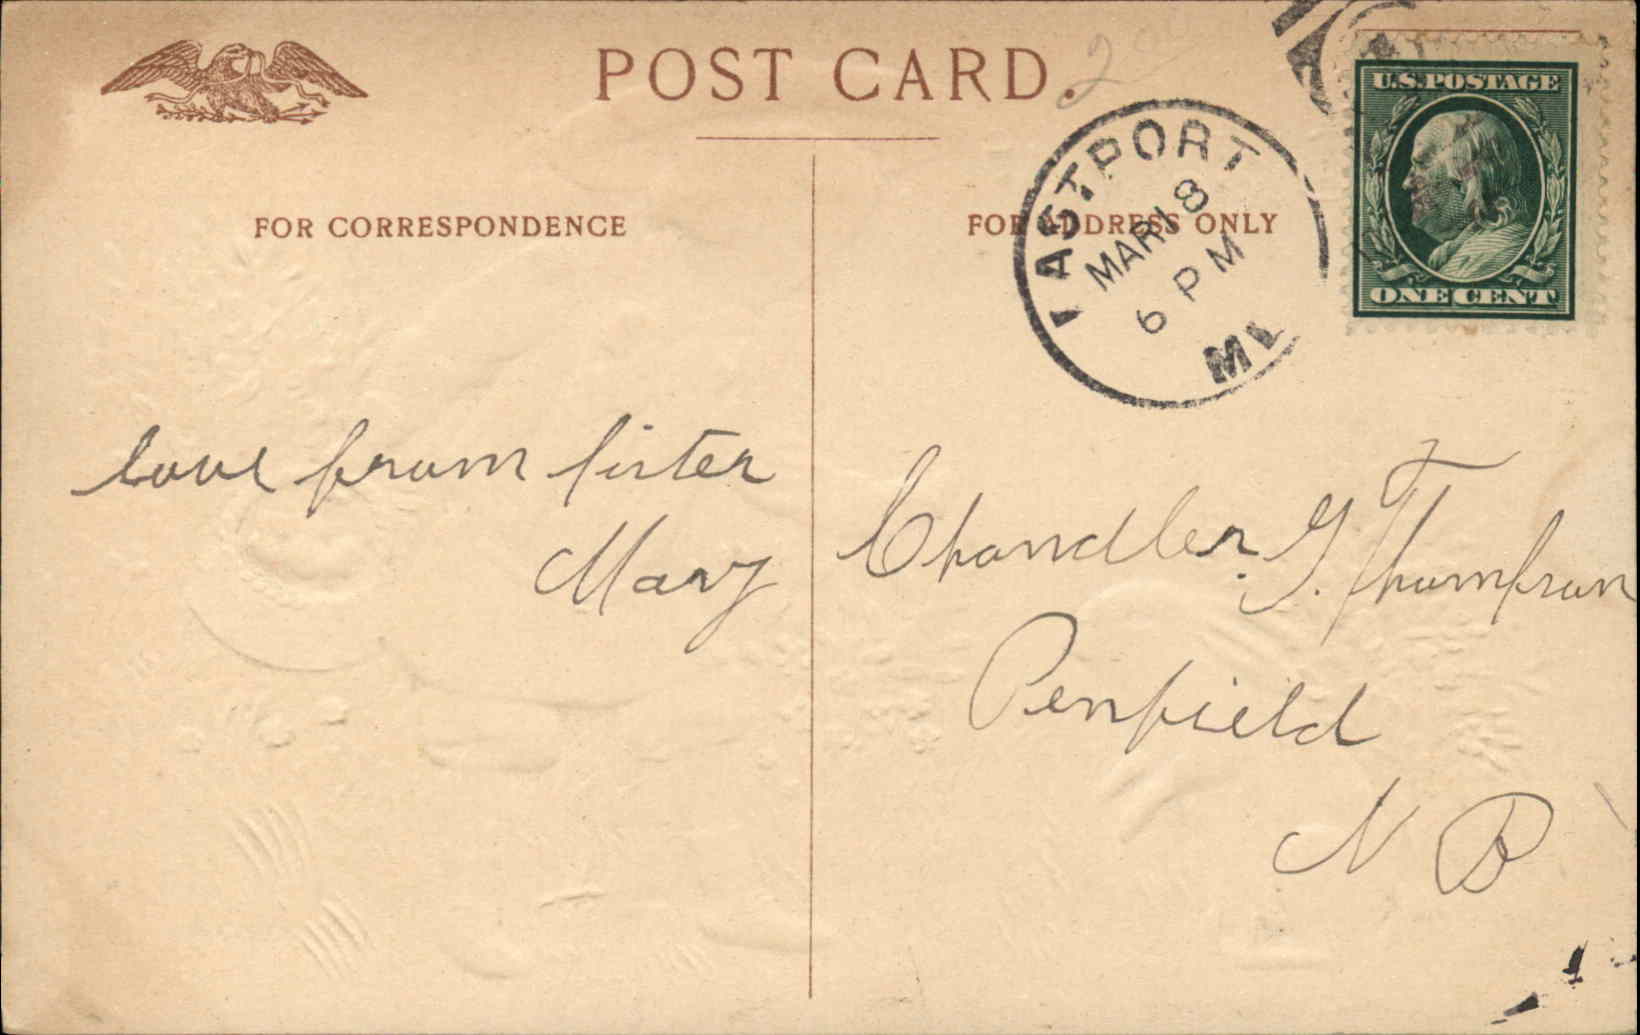 POST CARD.
2
FOR CORRESPONDENCE
FOR ADDRESS ONLY
EASTPORT
MAR 18
6 PM
ME
U.S. POSTAGE
ONE CENT
Love from sister
Mary
Chandler. G. Thompson
Penfield
N B